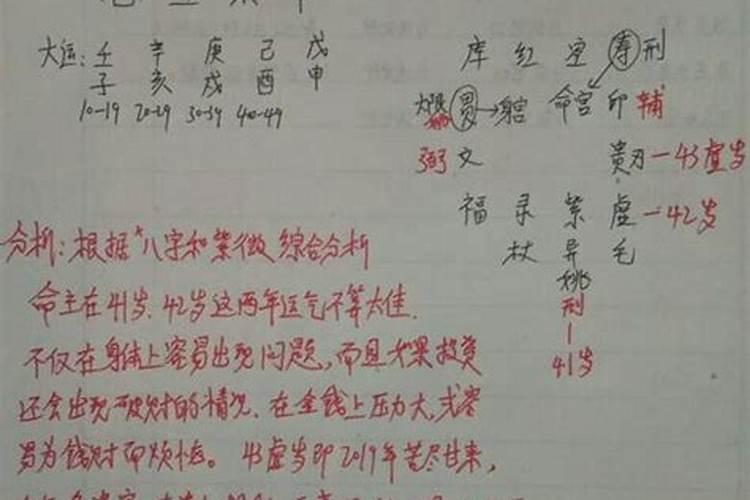 大运: 壬 辛 庚 己 戊
子 亥 戌 酉 申
10-19 20-29 30-39 40-49
库 红 空 寿 刑
大限 貫 → 身宫 命宫 印 辅
弼 文 贵刃-43虚岁
福 录 紫 虚-42岁
杖 异 毛
姚
刑
41岁
分析: 根据"八字和紫微综合分析
命主在41岁、42岁这两年运气不算太佳.
不仅在身体上容易出现问题,而且如果投资
还会出现破财的情况、在金钱上压力大,或容
易为钱财而烦恼。43虚岁即2019年苦尽甘来,